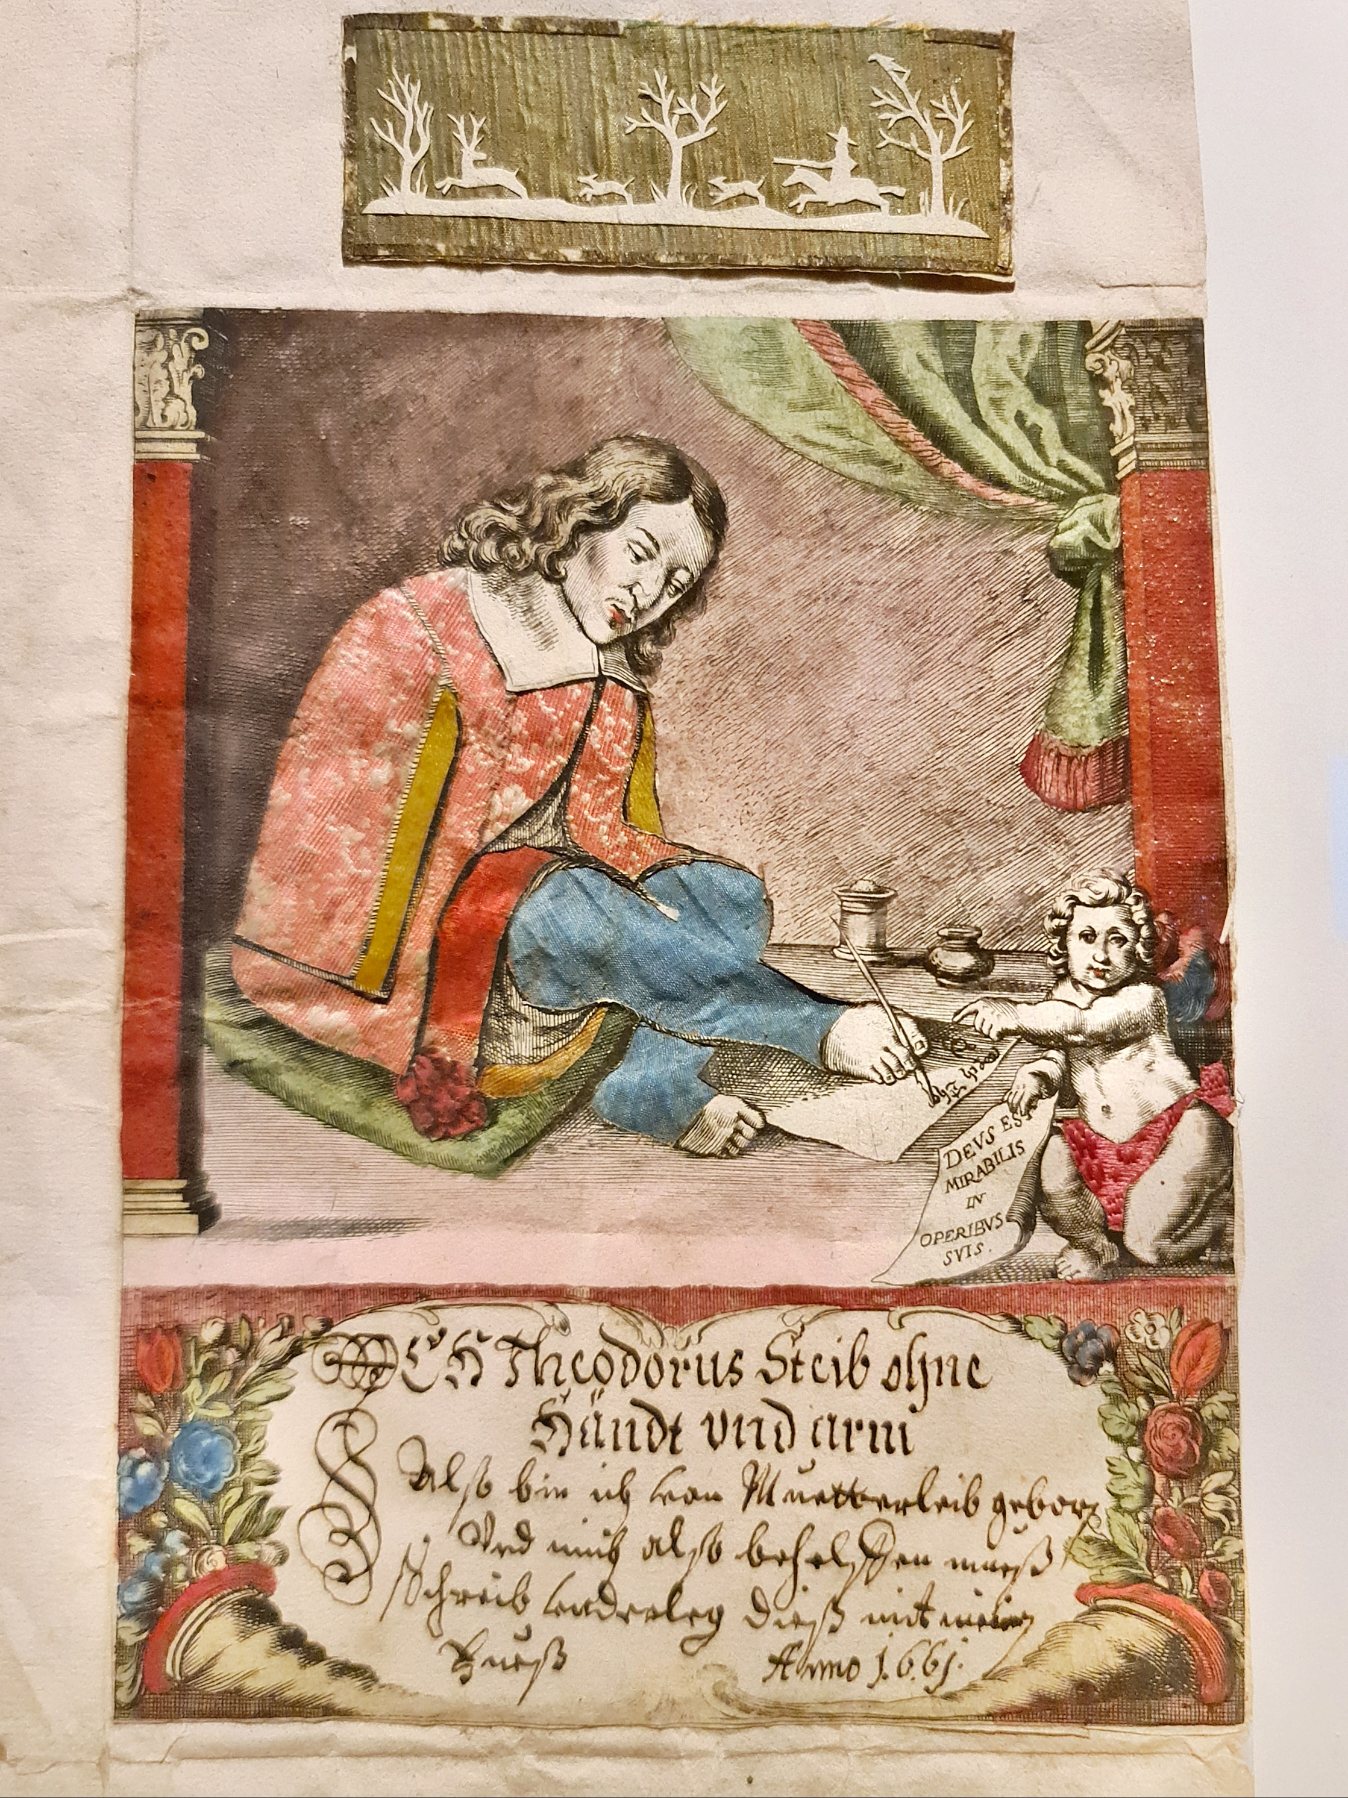 DEVS EST
MIRABILIS
IN
OPERIBVS
SVIS.
ICH Theodorus Steib ohne
Händt vnd arm
Also bin ich von Muetterleib geborn
Vnd mich also behelffen mueß
Schreib dieß mit meinen
Fueß Anno 1661.